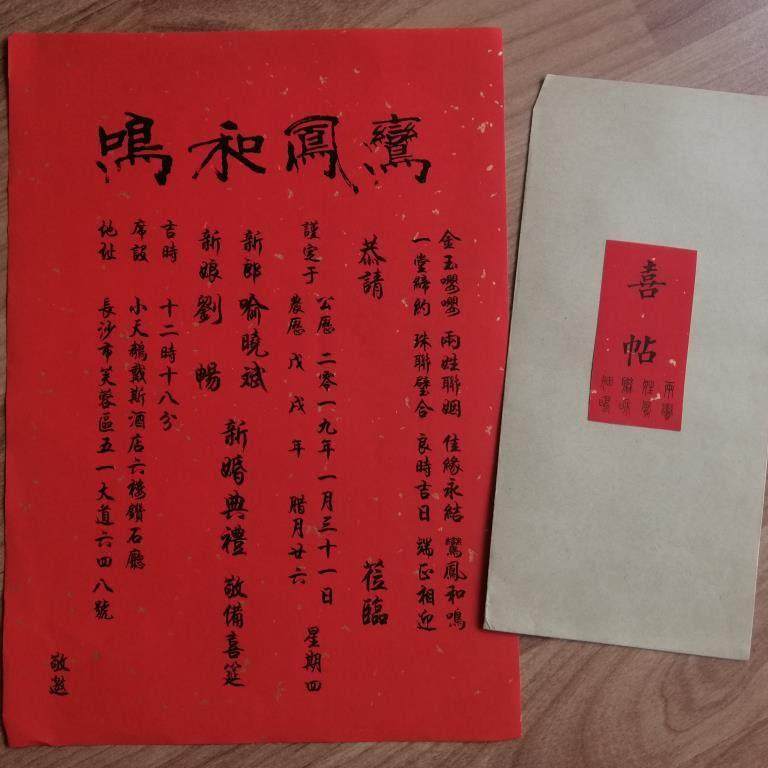 鸞鳳和鳴
金玉嚶嚶 兩姓聯姻 佳緣永結 鸞鳳和鳴
一堂締約 珠聯璧合 良時吉日 端正相迎
恭請 蒞臨
謹定于
公曆 二零一九年一月三十一日
農曆 戊戌年 腊月廿六
星期四
新郎 喻曉斌
新娘 劉暢
新婚典禮 敬備喜筵
吉時 十二時十八分
席設 小天鵝戴斯酒店六樓鑽石廳
地址 長沙市芙蓉區五一大道六四八號
敬邀
喜帖